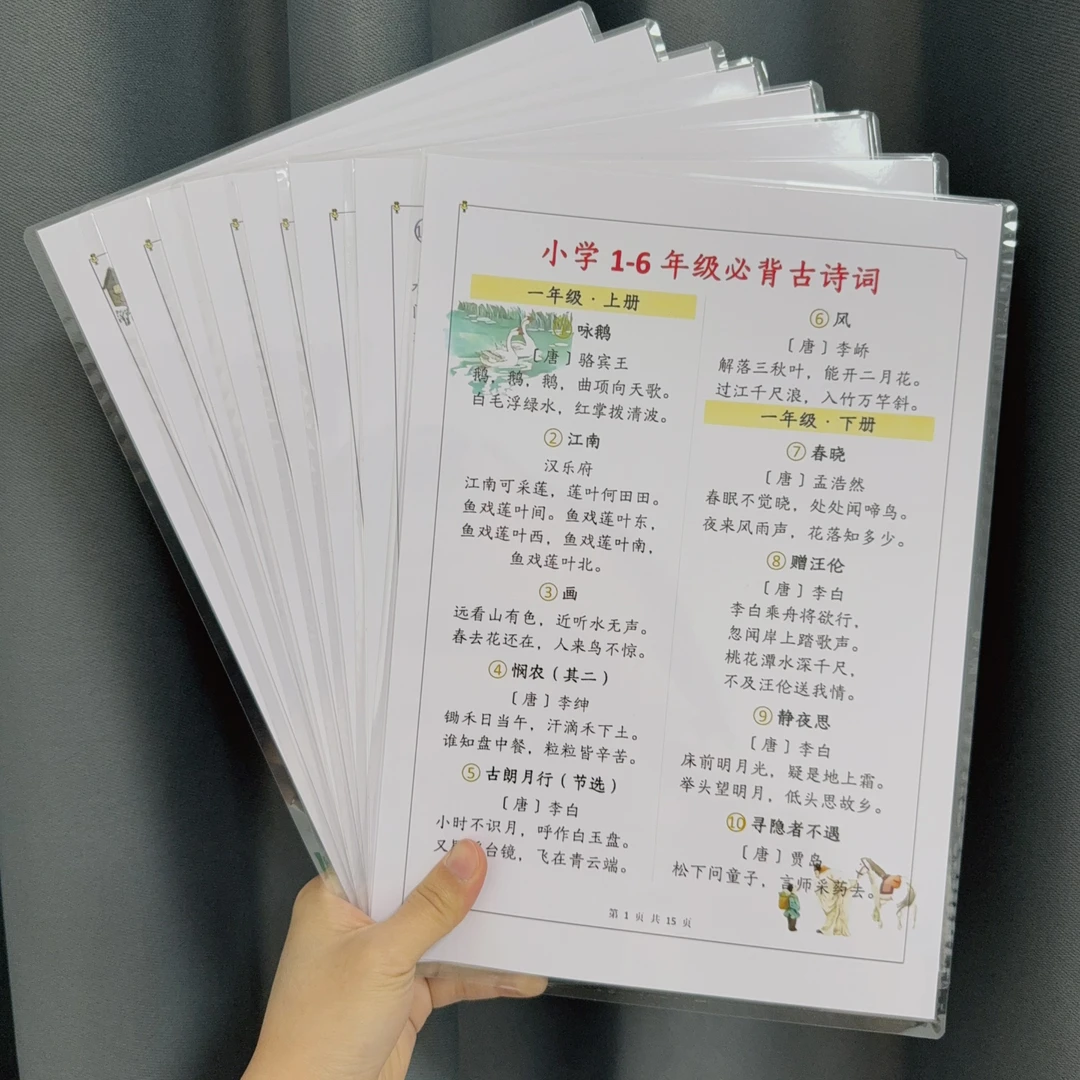 小学1-6年级必背古诗词
一年级·上册
咏鹅
〔唐〕骆宾王
鹅，鹅，鹅，曲项向天歌。
白毛浮绿水，红掌拨清波。
② 江南
汉乐府
江南可采莲，莲叶何田田。
鱼戏莲叶间。鱼戏莲叶东，
鱼戏莲叶西，鱼戏莲叶南，
鱼戏莲叶北。
③ 画
远看山有色，近听水无声。
春去花还在，人来鸟不惊。
④ 悯农（其二）
〔唐〕李绅
锄禾日当午，汗滴禾下土。
谁知盘中餐，粒粒皆辛苦。
⑤ 古朗月行（节选）
〔唐〕李白
小时不识月，呼作白玉盘。
又台镜，飞在青云端。
⑥ 风
〔唐〕李峤
解落三秋叶，能开二月花。
过江千尺浪，入竹万竿斜。
一年级·下册
⑦ 春晓
〔唐〕孟浩然
春眠不觉晓，处处闻啼鸟。
夜来风雨声，花落知多少。
⑧ 赠汪伦
〔唐〕李白
李白乘舟将欲行，
忽闻岸上踏歌声。
桃花潭水深千尺，
不及汪伦送我情。
⑨ 静夜思
〔唐〕李白
床前明月光，疑是地上霜。
举头望明月，低头思故乡。
⑩ 寻隐者不遇
〔唐〕贾岛
松下问童子，言师采药去。
第 1 页 共 15 页